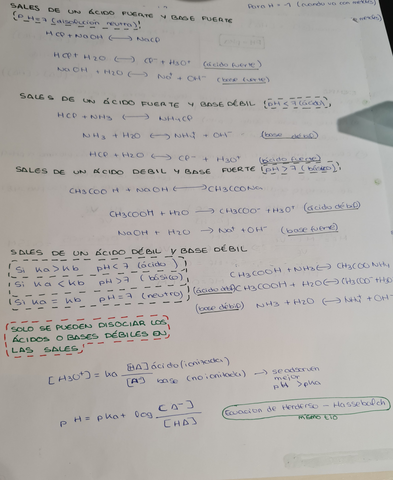 SALES DE UN ÁCIDO FUERTE Y BASE FUERTE
[pH = 7 (disolución neutra)]
HCl + NaOH ⟷ NaCl
HCl + H2O ⟷ Cl⁻ + H3O⁺ (ácido fuerte)
NaOH + H2O ⟷ Na⁺ + OH⁻ (base fuerte)
SALES DE UN ÁCIDO FUERTE Y BASE DÉBIL [pH < 7 (ácida)]
HCl + NH3 ⟷ NH4Cl
NH3 + H2O ⟷ NH4⁺ + OH⁻ (base débil)
HCl + H2O ⟷ Cl⁻ + H3O⁺ (ácido fuerte)
SALES DE UN ÁCIDO DEBIL Y BASE FUERTE [pH > 7 (básico)]
CH3COOH + NaOH ⟷ CH3COONa
CH3COOH + H2O → CH3COO⁻ + H3O⁺ (ácido débil)
NaOH + H2O → Na⁺ + OH⁻ (base fuerte)
SALES DE UN ÁCIDO DÉBIL Y BASE DÉBIL
Si Ka > Kb pH < 7 (ácido)
Si Ka < Kb pH > 7 (básico)
Si Ka = Kb pH = 7 (neutro)
CH3COOH + NH3 ⟷ CH3COONH4
(ácido débil) CH3COOH + H2O ⟷ CH3COO⁻ + H3O
(base débil) NH3 + H2O ⟷ NH4⁺ + OH⁻
SOLO SE PUEDEN DISOCIAR LOS
ÁCIDOS O BASES DÉBILES EN
LAS SALES
[CH3O⁺] = Ka [HA] ácido (ionizada) / [A] base (no ionizada) → se adsorven
mejor
pH > pKa
pH = pKa + log [A⁻] / [HA]
Ecuación de Henderso - Hasselbalch